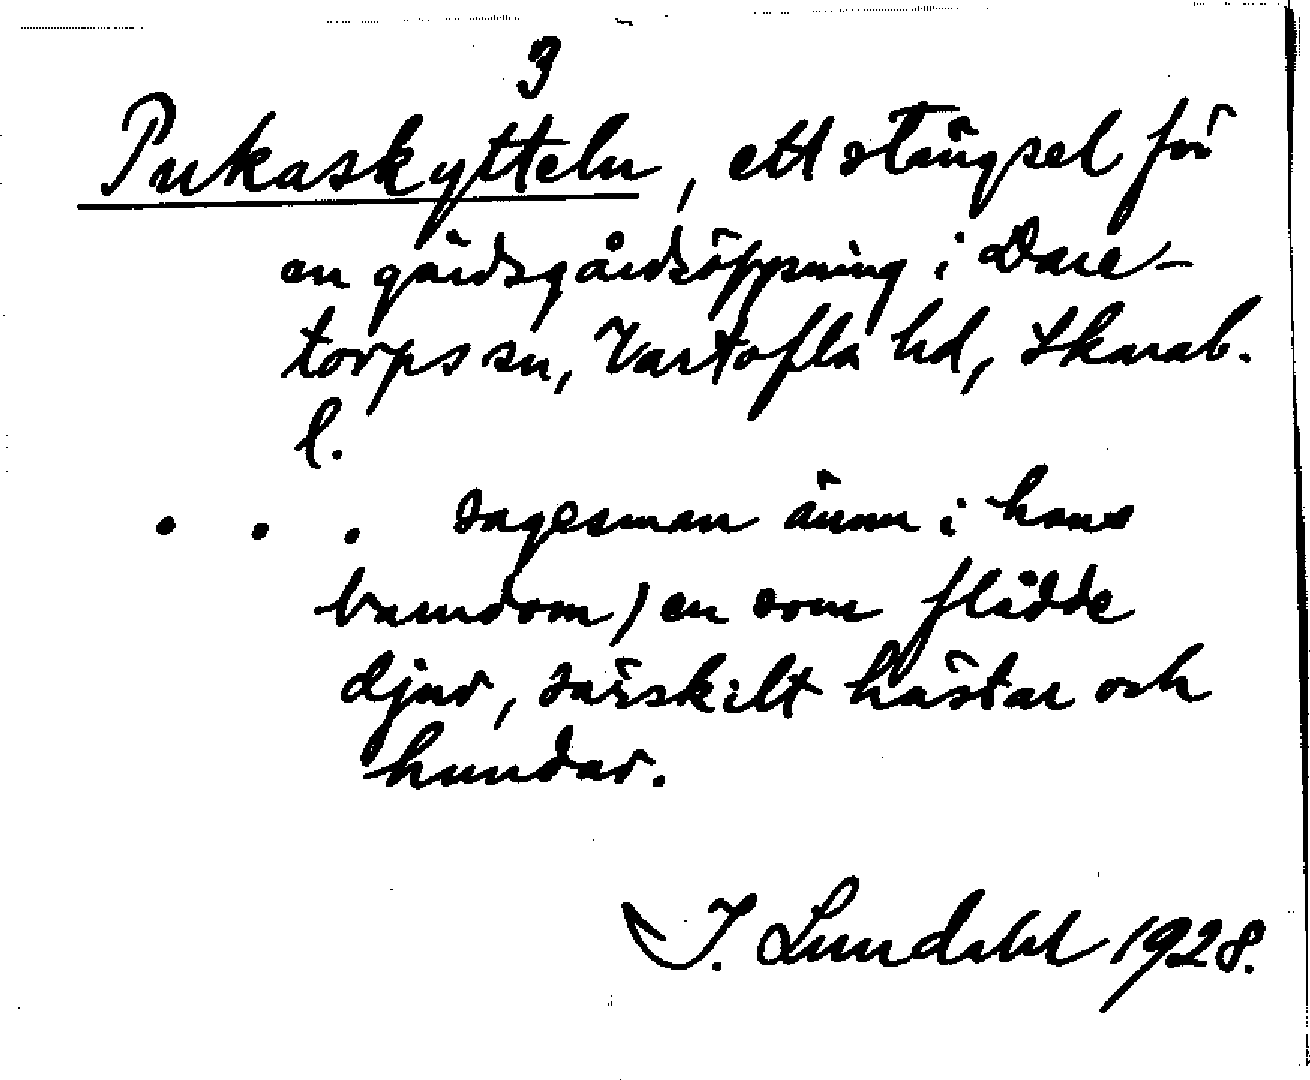 3
Pukaskytteln, ett stängsel för
en gärdsgårdsöppning i Dare-
torps sn, Vartofta hd, Skarab.
l.
. . . sagesman ännu i hans
barndom) en som flådde
djur, särskilt hästar och
hundar.
I. Lundahl 1928.